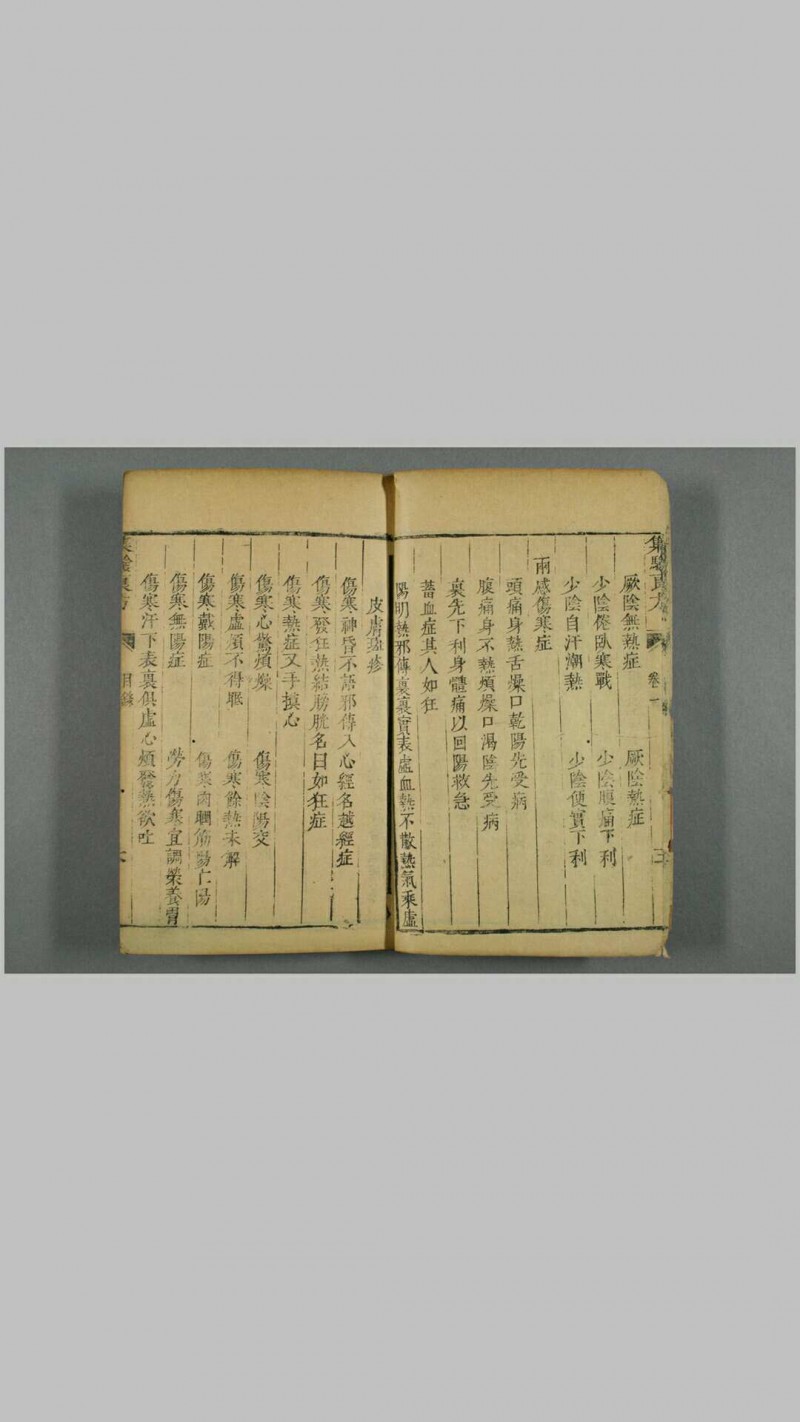 集驗良方 卷一
厥陰無熱症 厥陰熱症
少陰倦臥寒戰 少陰腹痛下利
少陰自汗潮熱 少陰便實下利
兩感傷寒症
頭痛身熱舌燥口乾陽先受病
腹痛身不熱煩燥口渴陰先受病
裏先下利身體痛以回陽救急
蓄血症其人如狂
陽明熱邪傳裏裏實表虛血熱不散熱氣乘虛
皮膚斑疹
傷寒神昏不語邪傳入心經名越經症
傷寒發狂熱結膀胱名曰如狂症
傷寒熱症叉手摸心
傷寒心驚煩燥 傷寒陰陽交
傷寒虛煩不得眠 傷寒餘熱未解
傷寒戴陽症 傷寒肉瞤筋惕亡陽
傷寒無陽症 勞力傷寒宜調榮養胃
傷寒汗下表裏俱虛心煩發熱欲吐
集驗良方 目錄